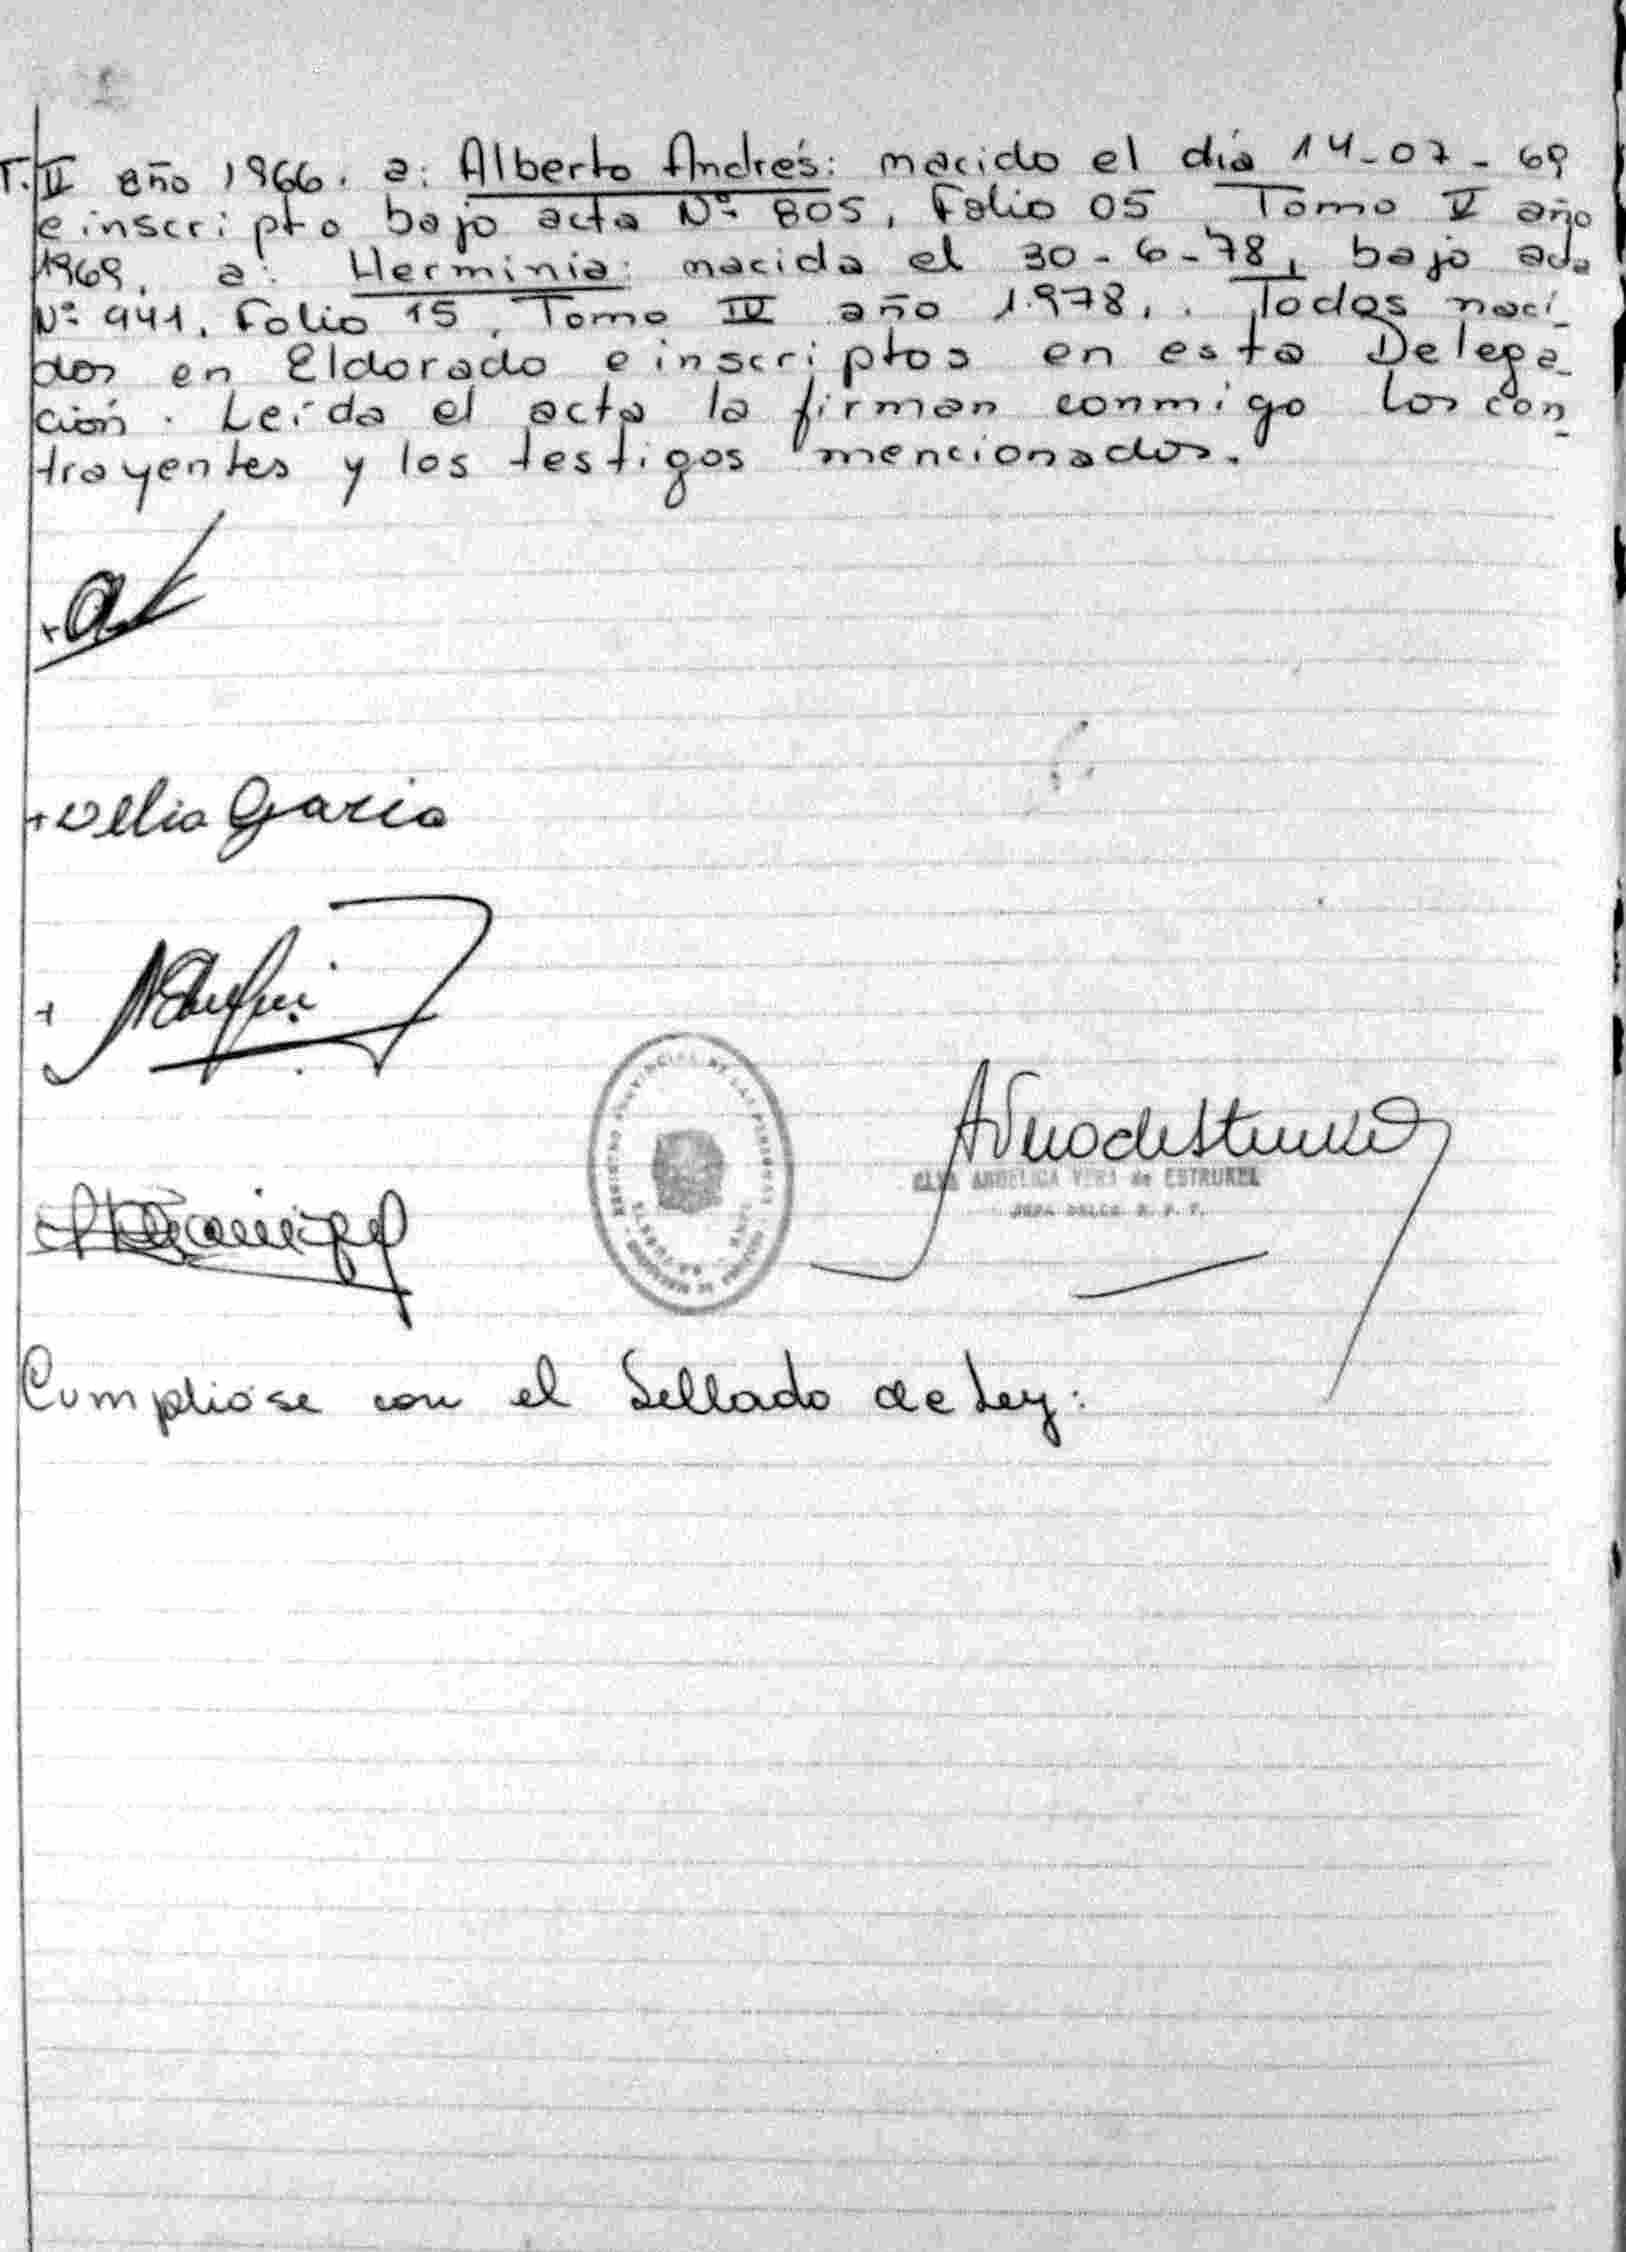 T. II año 1966. a: Alberto Andrés: nacido el día 14-07-69
e inscripto bajo acta Nº 805, Folio 05 Tomo V año
1969, a: Herminia: nacida el 30-6-78, bajo acta
Nº 941, Folio 15, Tomo IV año 1.978,. Todos naci-
dos en Eldorado e inscriptos en esta Delega-
ción. Leída el acta la firman conmigo los con-
trayentes y los testigos mencionados.
García
PROVINCIAL DE LAS PERSONAS
ANGELICA VERA de ESTRUKEL
Cumplióse con el Sellado de Ley: